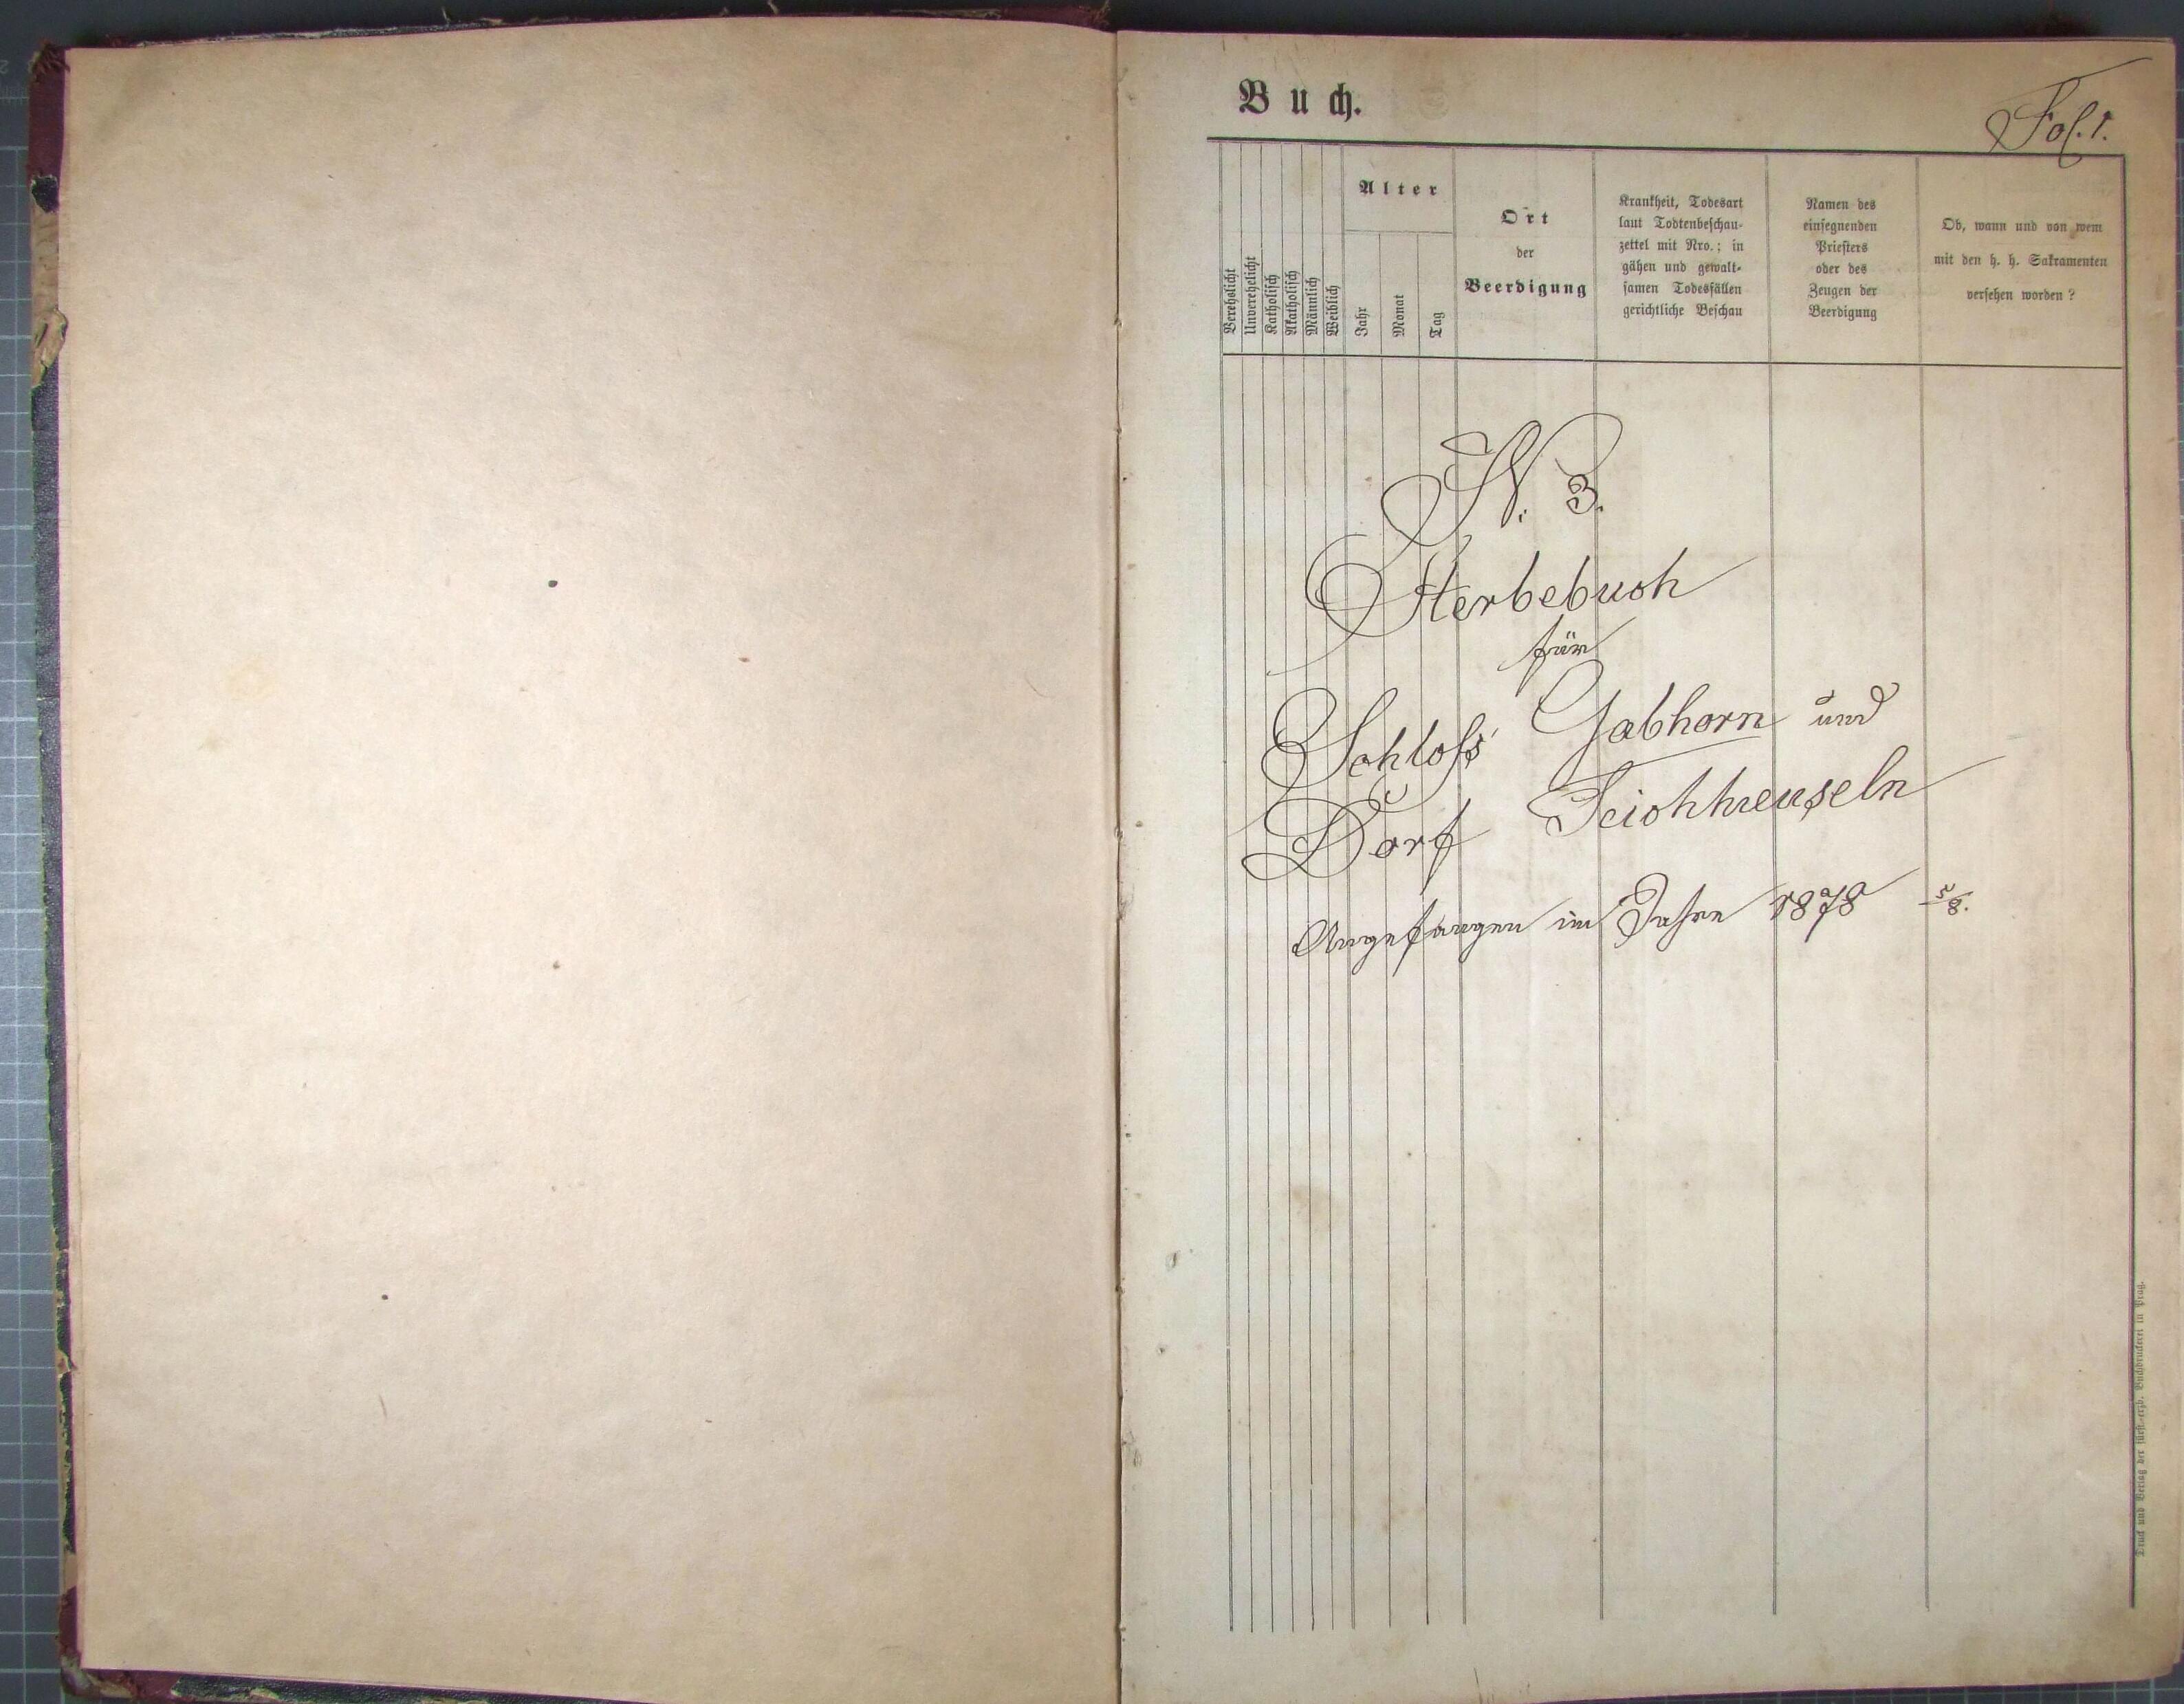 Buch.
Fol. 1.
Verehelicht
Unverehelicht
Katholisch
Akatholisch
Männlich
Weiblich
Alter
Jahr
Monat
Tag
Ort
der
Beerdigung
Krankheit, Todesart
laut Todtenbeschau-
zettel mit Nro.; in
gähen und gewalt-
samen Todesfällen
gerichtliche Beschau
Namen des
einsegnenden
Priesters
oder des
Zeugen der
Beerdigung
Ob, wann und von wem
mit den h. h. Sakramenten
versehen worden?
N. 3.
Sterbebuch
für
Schloß Gabhorn und
Dorf Teichhreuseln
Angefangen im Jahre 1878 5/8.
Druck und Verlag der fürst.-erzb. Buchdruckerei in Prag.